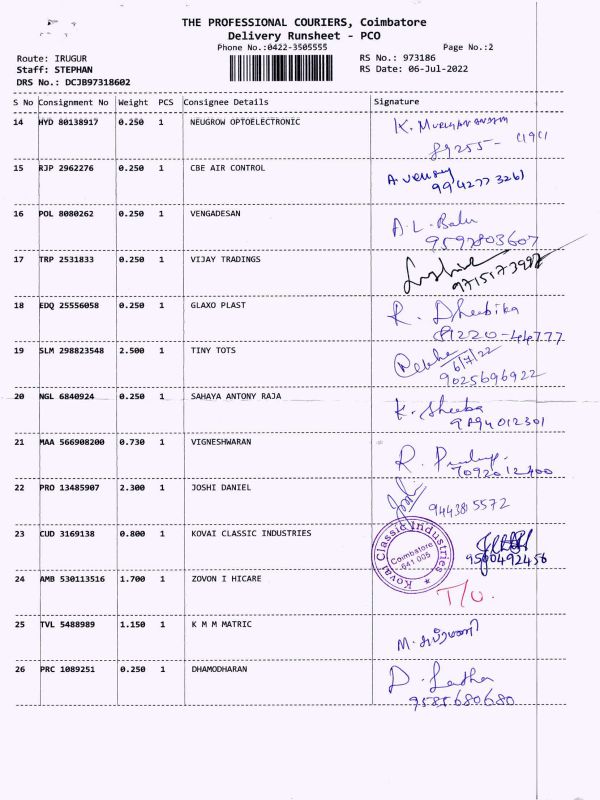 THE PROFESSIONAL COURIERS, Coimbatore
Delivery Runsheet - PCO
Phone No.:0422-3505555 Page No.:2
Route: IRUGUR RS No.: 973186
Staff: STEPHAN RS Date: 06-Jul-2022
DRS No.: DCJB97318602
S No Consignment No Weight PCS Consignee Details Signature
14 HYD 80138917 0.250 1 NEUGROW OPTOELECTRONIC K. Murughanandam
89255-
15 RJP 2962276 0.250 1 CBE AIR CONTROL A venu
9942773261
16 POL 8080262 0.250 1 VENGADESAN A.L. Balu
9597803607
17 TRP 2531833 0.250 1 VIJAY TRADINGS
18 EDQ 25556058 0.250 1 GLAXO PLAST R. Dheebika
89220-44777
19 SLM 298823548 2.500 1 TINY TOTS Rekha
6/7/22
9025696922
20 NGL 6840924 0.250 1 SAHAYA ANTONY RAJA K. Sheeba
9894012301
21 MAA 566908200 0.730 1 VIGNESHWARAN R.
7092012400
22 PRO 13485907 2.300 1 JOSHI DANIEL
9443815572
23 CUD 3169138 0.800 1 KOVAI CLASSIC INDUSTRIES Kovai Classic Industries
Coimbatore
641 005
9500492456
24 AMB 530113516 1.700 1 ZOVON I HICARE T/O.
25 TVL 5488989 1.150 1 K M M MATRIC M. சுப்ரமணி
26 PRC 1089251 0.250 1 DHAMODHARAN D. Latha
9585680680